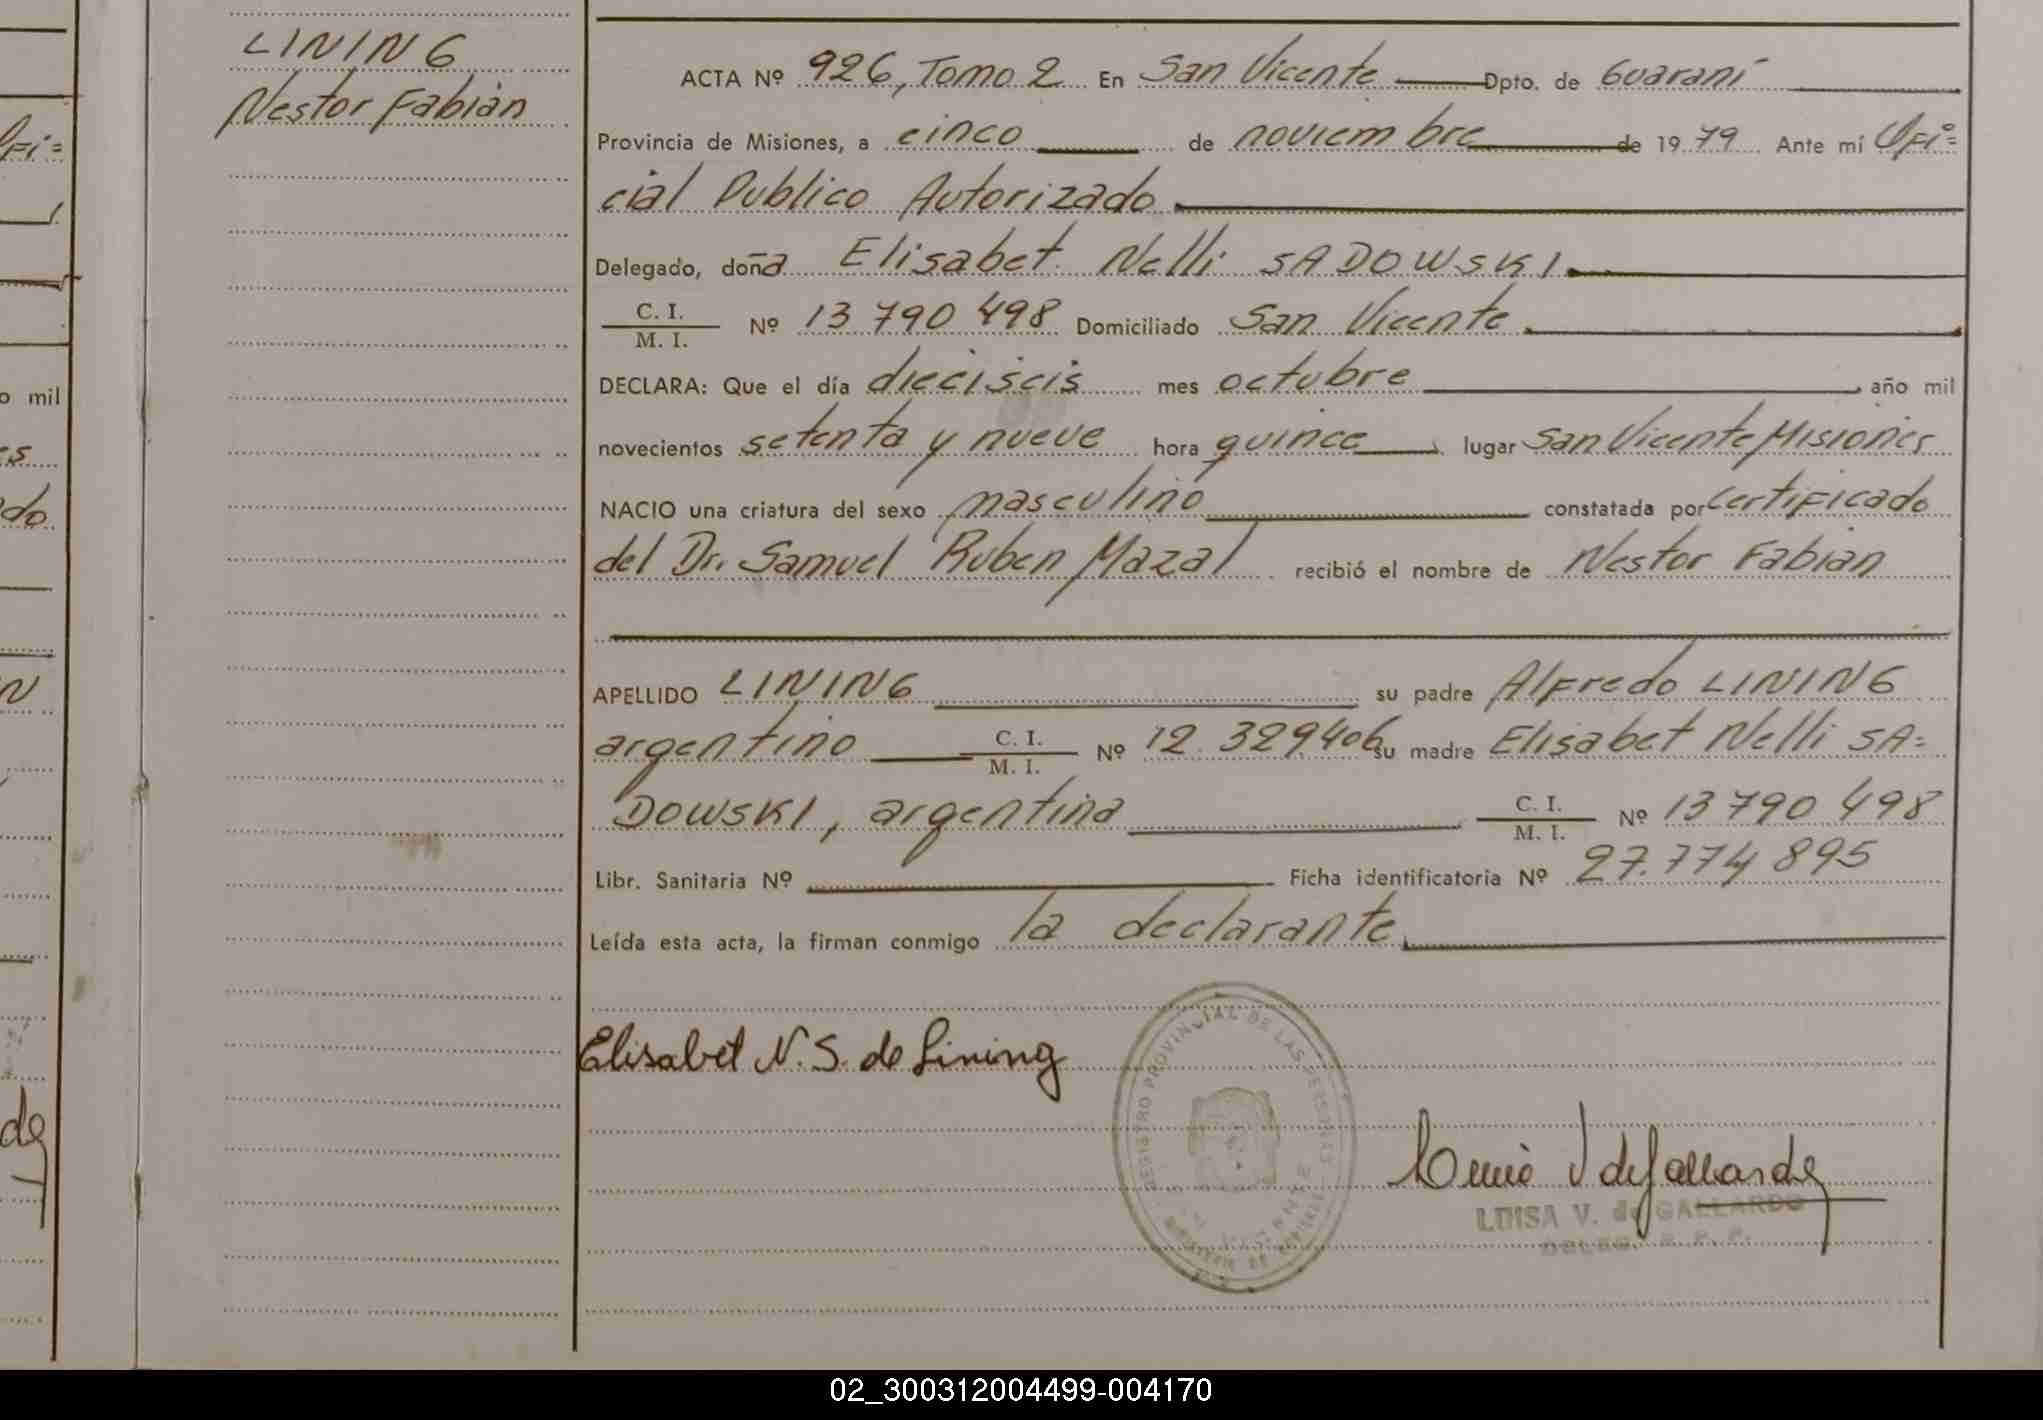 LINING
Nestor Fabián
ACTA Nº 926, Tomo 2 En San Vicente Dpto. de Guaraní
Provincia de Misiones, a cinco de noviembre de 1979 Ante mí Ofi=
cial Publico Autorizado
Delegado, doña Elisabet Nelli SADOWSKI
C. I.
M. I. Nº 13 790 498 Domiciliado San Vicente
DECLARA: Que el día dieciseis mes octubre año mil
novecientos setenta y nueve hora quince lugar San Vicente Misiones
NACIO una criatura del sexo masculino constatada por certificado
del Dr. Samuel Ruben Mazal recibió el nombre de Nestor Fabián
APELLIDO LINING su padre Alfredo LINING
argentino C. I. M. I. Nº 12.329406 su madre Elisabet Nelli SA=
DOWSKI, argentina C. I. M. I. Nº 13 790 498
Libr. Sanitaria Nº Ficha identificatoria Nº 27.774 895
Leída esta acta, la firman conmigo la declarante
Elisabet N. S. de Lining
REGISTRO PROVINCIAL DE LAS PERSONAS
LUISA V. de GALLARDO
02_300312004499-004170